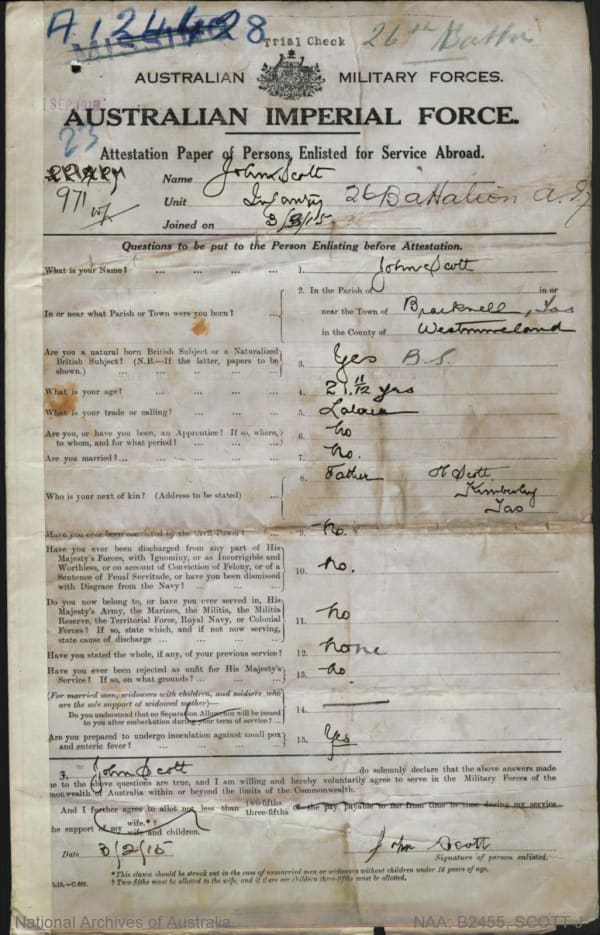 A 124428
MISSING
Trial Check
26th Battn
AUSTRALIAN MILITARY FORCES.
AUSTRALIAN IMPERIAL FORCE.
23
Attestation Paper of Persons Enlisted for Service Abroad.
971
Name John Scott
Unit Infantry 26 Battalion A.I.F
Joined on 3/3/15
Questions to be put to the Person Enlisting before Attestation.
What is your Name? ... ... ... ... 1. John Scott
In or near what Parish or Town were you born? ... 2. In the Parish of in or
near the Town of Bracknell, Tas
in the County of Westmoreland
Are you a natural born British Subject or a Naturalized
British Subject? (N.B.—If the latter, papers to be
shown.) ... ... ... ... 3. Yes B.S.
What is your age? ... ... ... ... 4. 21 11/12 yrs
What is your trade or calling? ... ... ... 5. Labourer
Are you, or have you been, an Apprentice? If so, where,
to whom, and for what period? ... ... ... 6. No
Are you married? ... ... ... ... 7. No.
Who is your next of kin? (Address to be stated) ... 8. Father H Scott
Kimberley
Tas
Have you ever been convicted by the Civil Power? ... 9. No.
Have you ever been discharged from any part of His
Majesty's Forces, with Ignominy, or as Incorrigible and
Worthless, or on account of Conviction of Felony, or of a
Sentence of Penal Servitude, or have you been dismissed
with Disgrace from the Navy? ... ... 10. No.
Do you now belong to, or have you ever served in, His
Majesty's Army, the Marines, the Militia, the Militia
Reserve, the Territorial Force, Royal Navy, or Colonial
Forces? If so, state which, and if not now serving,
state cause of discharge ... ... ... 11. No
Have you stated the whole, if any, of your previous service? 12. None
Have you ever been rejected as unfit for His Majesty's
Service? If so, on what grounds? ... ... 13. No
(For married men, widowers with children, and soldiers who
are the sole support of widowed mother)—
Do you understand that no Separation Allowance will be issued
to you after embarkation during your term of service? ... 14.
Are you prepared to undergo inoculation against small pox
and enteric fever? ... ... ... ... 15. Yes
I, John Scott do solemnly declare that the above answers made
me to the above questions are true, and I am willing and hereby voluntarily agree to serve in the Military Forces of the
monwealth of Australia within or beyond the limits of the Commonwealth.
And I further agree to allot not less than two-fifths three-fifths of the pay payable to me from time to time during my service
the support of my wife.*† wife and children.
John Scott
Date 3/2/15
Signature of person enlisted.
*This clause should be struck out in the case of unmarried men or widowers without children under 18 years of age.
†Two-fifths must be allotted to the wife, and if there are children three-fifths must be allotted.
National Archives of Australia
NAA: B2455, SCOTT J